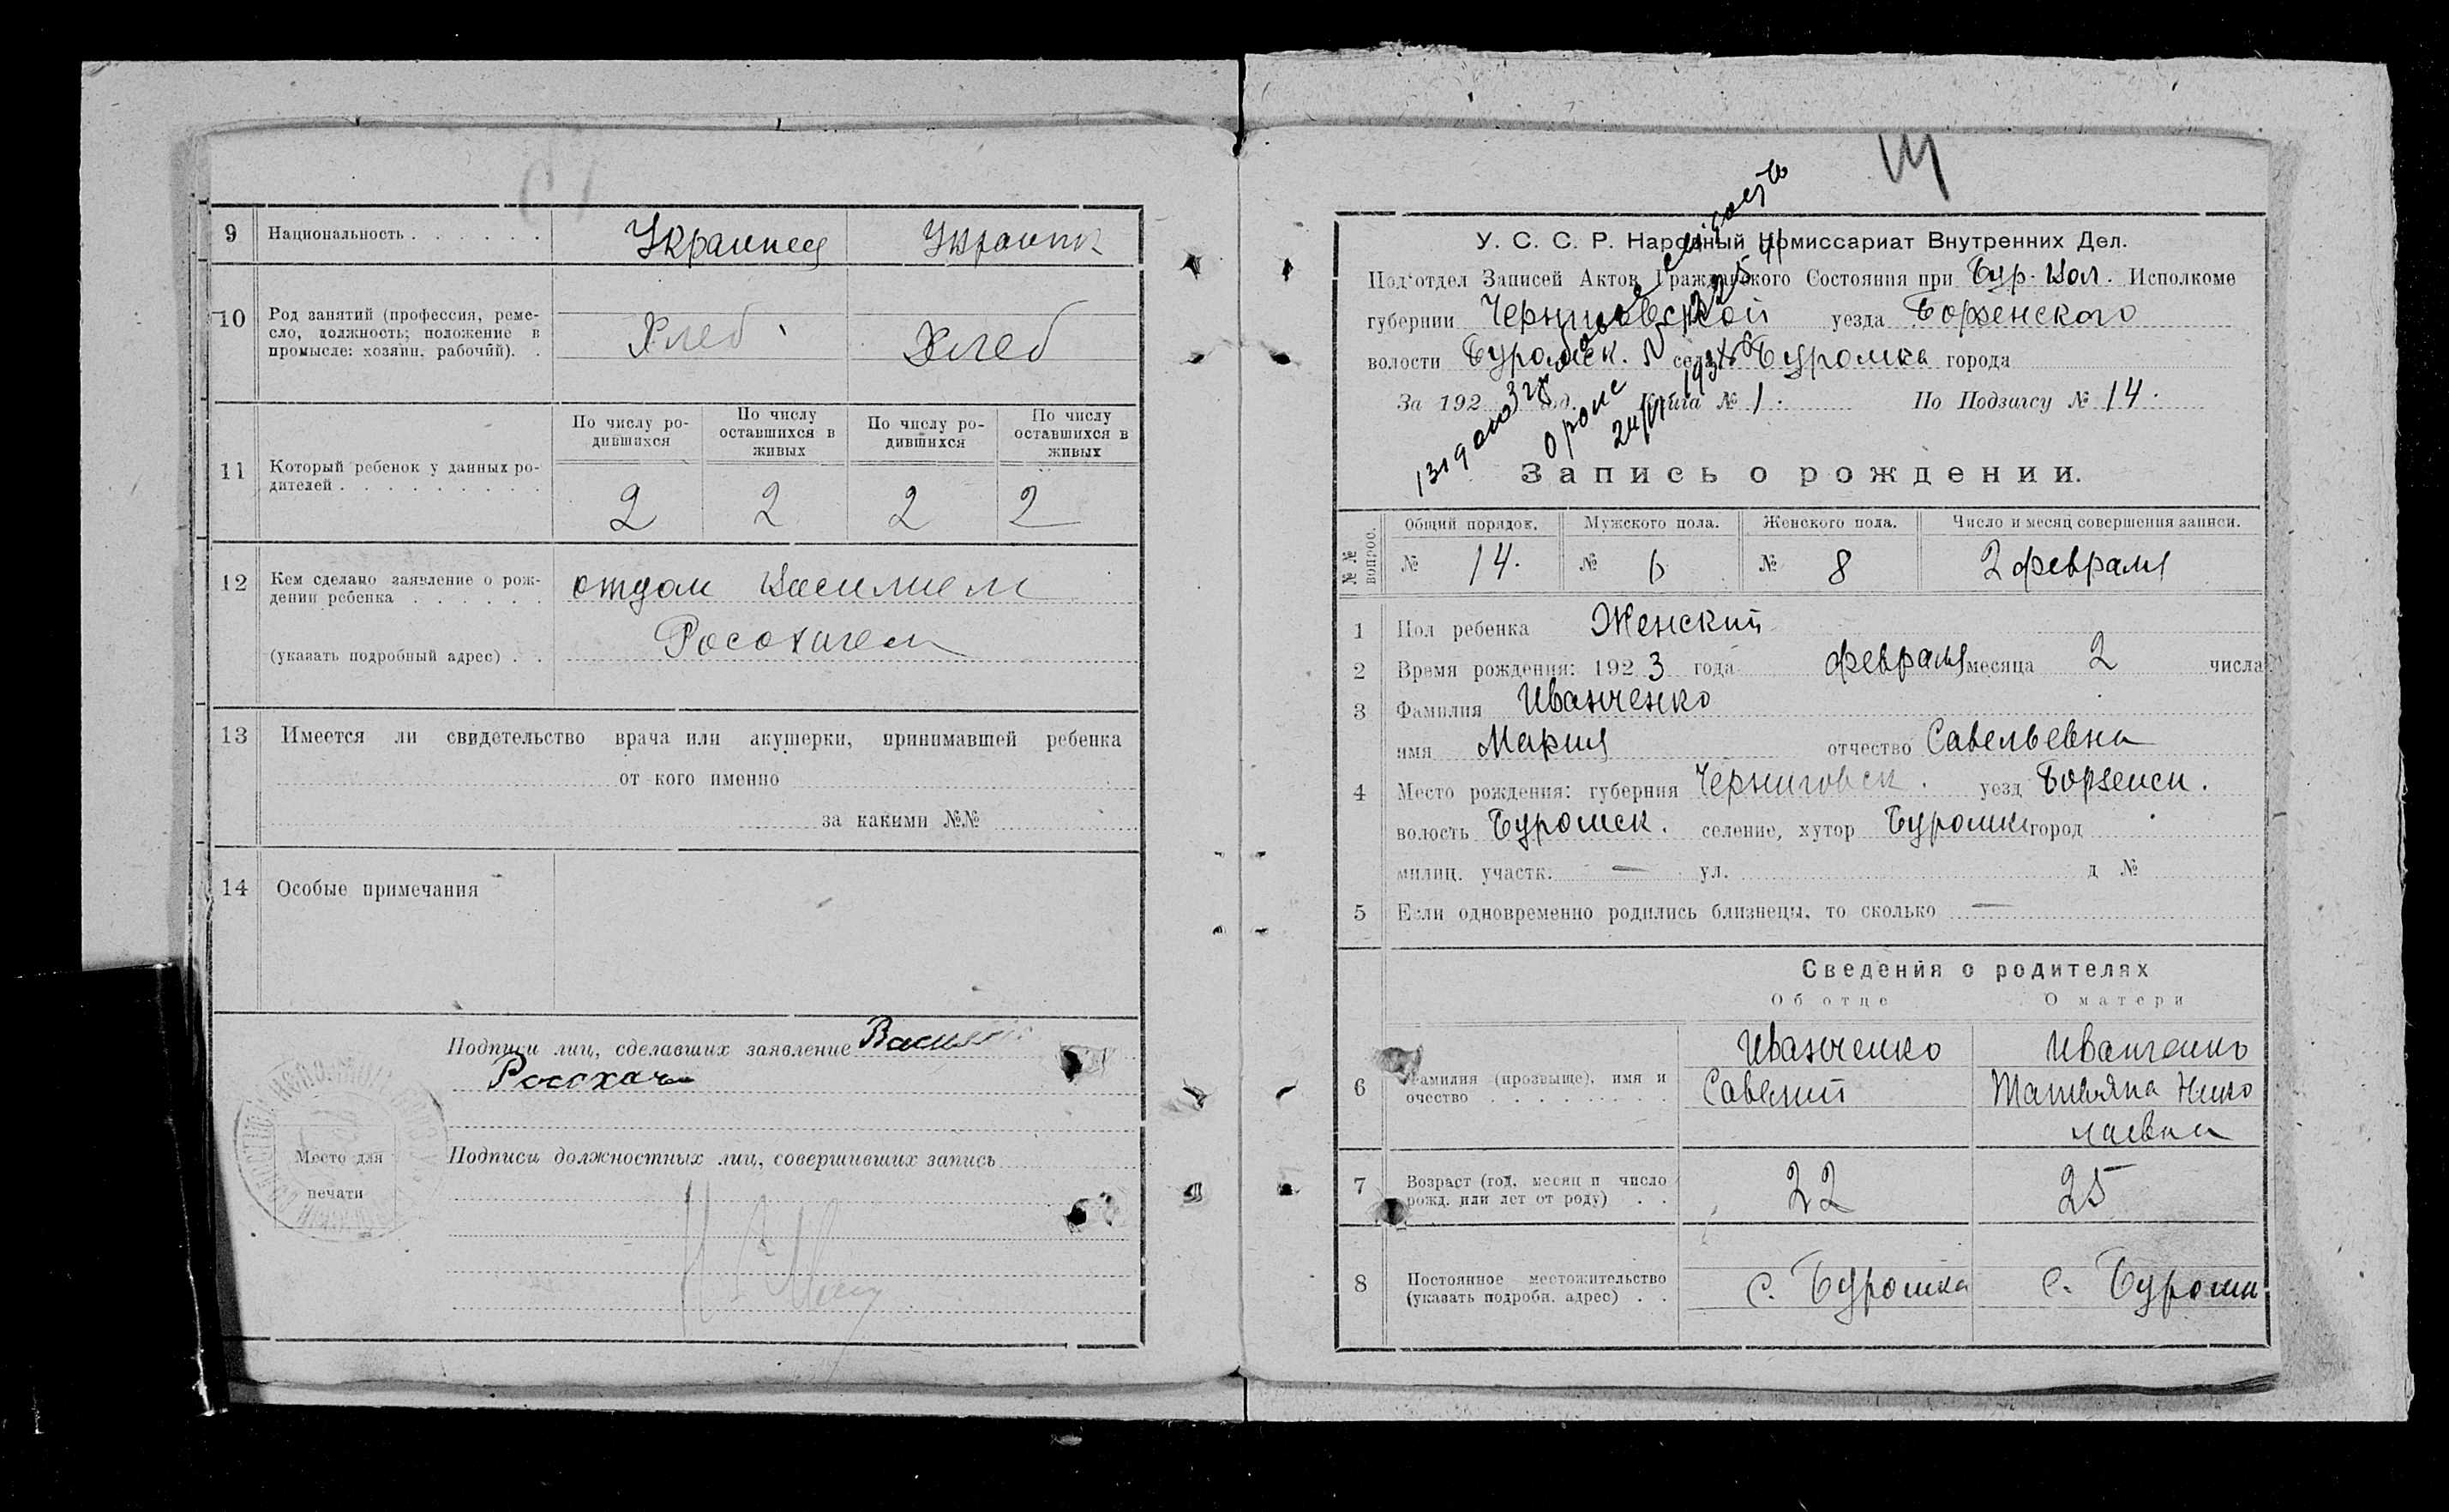 9 Национальность . . . . . . Украинец Украинк
10 Род занятий (профессия, реме-
сло, должность; положение в
промысле: хозяин, рабочий). . Хлеб Хлеб
11 Который ребенок у данных ро-
дителей . . . . . . . . .
По числу ро-
дившихся
По числу
оставшихся в
живых
По числу ро-
дившихся
По числу
оставшихся в
живых
2 2 2 2
12 Кем сделано заявление о рож-
дении ребенка . . . . . . отцом Василием
Росохачем
(указать подробный адрес) . .
13 Имеется ли свидетельство врача или акушерки, принимавшей ребенка
от кого именно
за какими №№
14 Особые примечания
Подписи лиц, сделавших заявление
Россхач
Место для
печати
Подписи должностных лиц, совершивших запись
14
У. С. С. Р. Народный Комиссариат Внутренних Дел.
Подотдел Записей Актов Гражданского Состояния при Бур. Вол. Исполкоме
губернии Черниговской уезда Борзенского
волости Буромск. села Буромка города
За 192 год. Книга № 1. По Подзагсу № 14.
Запись о рождении.
№ № вопрос.
Общий порядок. Мужского пола. Женского пола. Число и месяц совершения записи.
№ 14. № 6 № 8 2 февраля
1 Пол ребенка Женский
2 Время рождения: 1923 года февраля месяца 2 числа.
3 Фамилия Иванченко
имя Мария отчество Савельевна
4 Место рождения: губерния Черниговск. уезд Борзенск.
волость Буромск. селение, хутор Буромка город
милиц. участк. — ул. д №
5 Если одновременно родились близнецы, то сколько —
Сведения о родителях
Об отце О матери
6 Фамилия (прозвыще), имя и
очество . . . . . . . . .
Иванченко
Савелий
Иванченко
Татьяна Нико
лаевна
7 Возраст (год, месяц и число
рожд. или лет от роду) . . 22 25
8 Постоянное местожительство
(указать подробн. адрес) . . с. Буромка с. Буромк